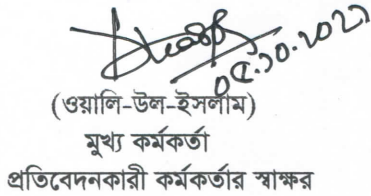 ০৫.১০.২০২১
(ওয়ালি-উল-ইসলাম)
মুখ্য কর্মকর্তা
প্রতিবেদনকারী কর্মকর্তার স্বাক্ষর